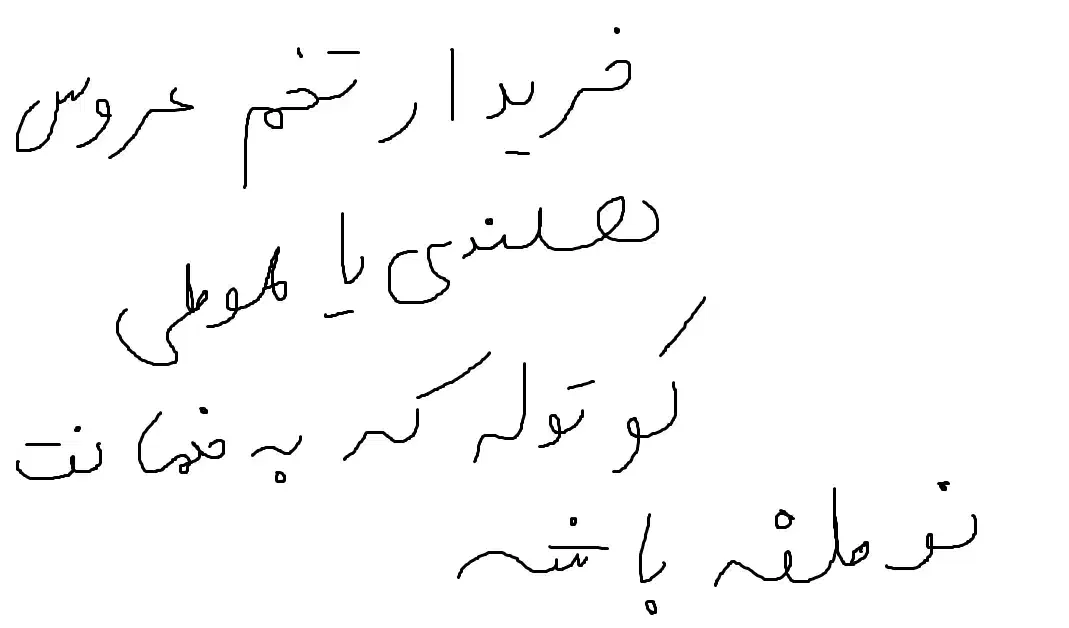 خریدار تخم عروس
هلندی یا طوطی
کوتوله که به ضمانت
نوطفه باشه